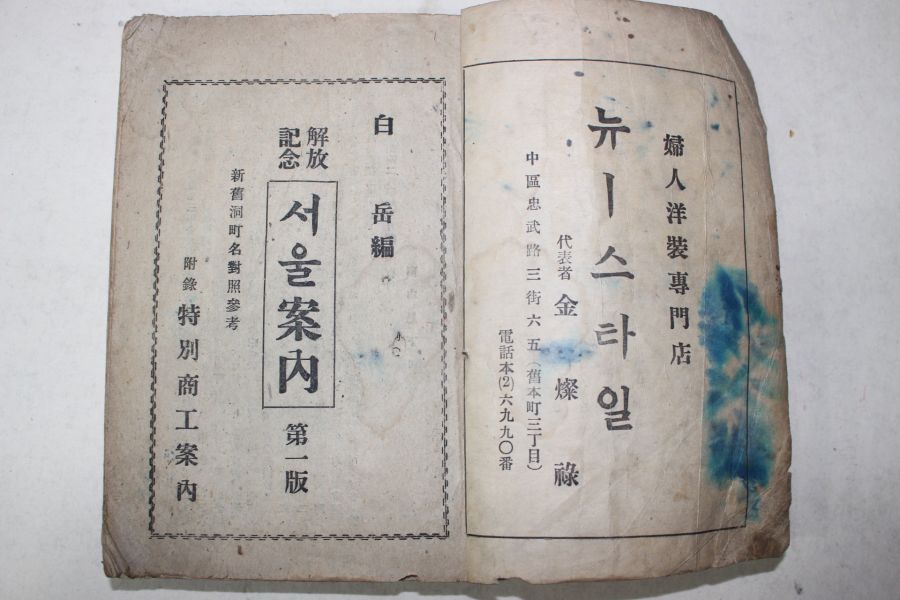 婦人洋裝專門店
뉴ー스타일
代表者 金燦祿
中區忠武路三街六五(舊本町三丁目)
電話本(2)六九九〇番
白岳編
解放
記念
서울案內
第一版
新舊洞町名對照參考
附錄 特別商工案內